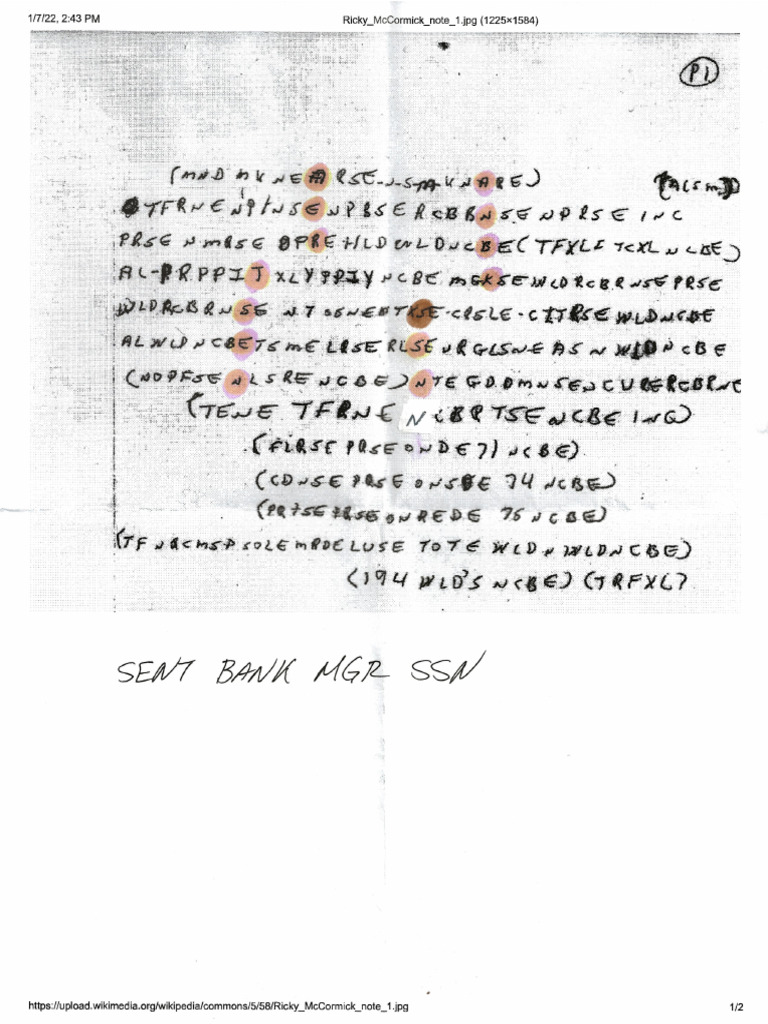 1/7/22, 2:43 PM
Ricky_McCormick_note_1.jpg (1225×1584)
P1
(MND MKNEARSE-N-S-M-KNARE) (ACSM)
TFRNE NPINSENPBSERCBBNSENPRSEINC
PRSENMRSEOPREHLDWLDNCBE(TFXLFTCXLNCBE)
AL-PRPPIT XLYPPIYNCBE MGKSEWLDRCBRNSEPRSE
WLDRCBRNSE NTSSNENTXSE-CRSLE-CITRSEWLDNCBE
ALWLDNCBETSMELRSERLSEURGLSNEASNWLDNCBE
(NOPFSENLSRENCBE)NTEGDDMNSENCURERCBRNE
(TENE TFRNE NCBRTSENCBEINC)
(FLRSE PRSEONDE71NCBE)
(CDNSE PRSE ONSDE 74 NCBE)
(PRTSE PRSEONREDE 75NCBE)
(TFNRCMSP SOLEMRDELUSE TOTE WLDN WLDNCBE)
(194 WLD'S NCBE) (TRFXL)
SENT BANK MGR SSN
https://upload.wikimedia.org/wikipedia/commons/5/58/Ricky_McCormick_note_1.jpg
1/2